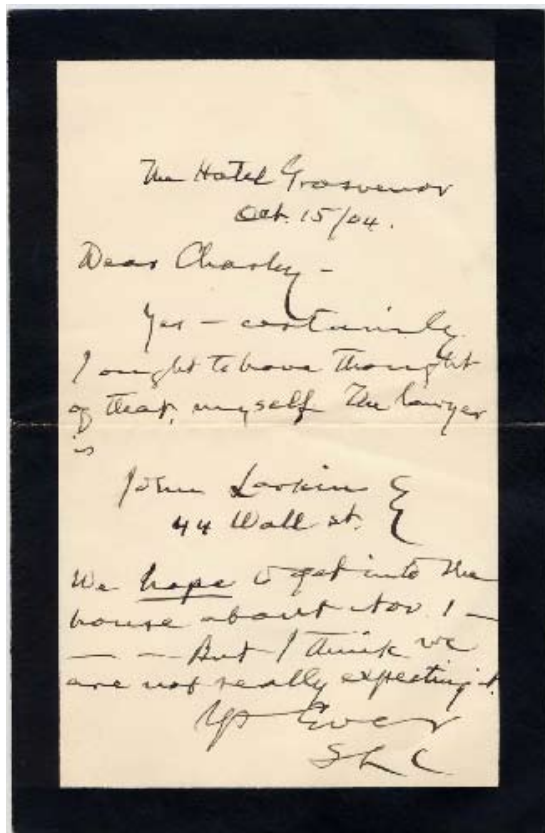 The Hotel Grosvenor
Oct. 15/04.
Dear Charley –
Yes – certainly.
I ought to have thought
of that, myself. The lawyer
is
John Larkin
44 Wall st.
We hope to get into the
house about Nov. 1 –
– – But I think we
are not really expecting it.
Yrs Ever
SLC